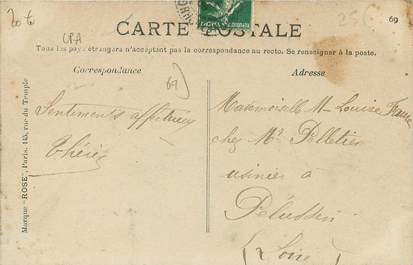 20 €
CPA
25€
69
CARTE POSTALE
Tous les pays étrangers n'acceptent pas la correspondance au recto. Se renseigner à la poste.
Correspondance
Adresse
69
Sentiments affectueux
Mademoiselle M Louise
chez Mr Pelletier
usinier à
Pélussin
(Loire)
Marque "ROSE", Paris, 145, rue du Temple